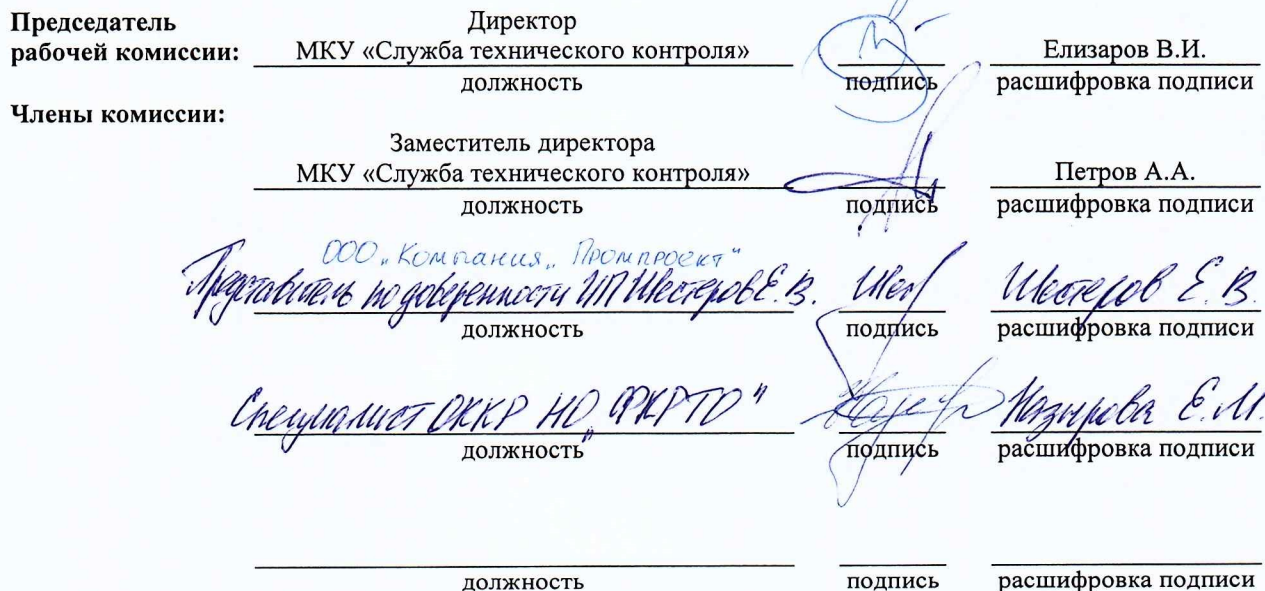 Председатель
рабочей комиссии:
Директор
МКУ «Служба технического контроля»
Елизаров В.И.
должность подпись расшифровка подписи
Члены комиссии:
Заместитель директора
МКУ «Служба технического контроля»
Петров А.А.
должность подпись расшифровка подписи
ООО „Компания „Промпроект"
Представитель по доверенности ИП Шестеров Е.В. Шестеров Е.В.
должность подпись расшифровка подписи
Специалист ОККР НО „ФКР ТО" Назырова Е.М.
должность подпись расшифровка подписи
должность подпись расшифровка подписи